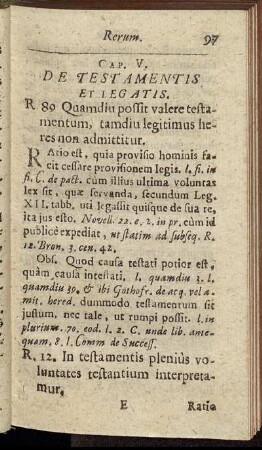 Rerum. 97
CAP. V.
DE TESTAMENTIS
ET LEGATIS.
R. 89 Quamdiu possit valere testa-
mentum, tamdiu legitimus he-
res non admittitur.
RAtio est, quia provisio hominis fa-
cit cessare provisionem legis. l. fi. in
fi. C. de pact. cum illius ultima voluntas
lex sit, quæ servanda, secundum Leg.
XII. tabb. uti legassit quisque de sua re,
ita jus esto, Novell. 22. c. 2. in pr. cùm id
publicè expediat, ut statim ad subseq. R.
12. Bron. 3. cen. 42.
Obs. Quod causa testati potior est,
quàm causa intestati. l. quamdiu 3. l.
quamdiu 39. & ibi Gothofr. de acq. vel a-
mit. hered. dummodo testamentum sit
justum, nec tale, ut rumpi possit. l. in
plurium. 70. eod. l. 2. C. unde lib. ante-
quam. 8. l. Comm de Success.
R. 12. In testamentis plenius vo-
luntates testantium interpreta-
mur.
E Ratio